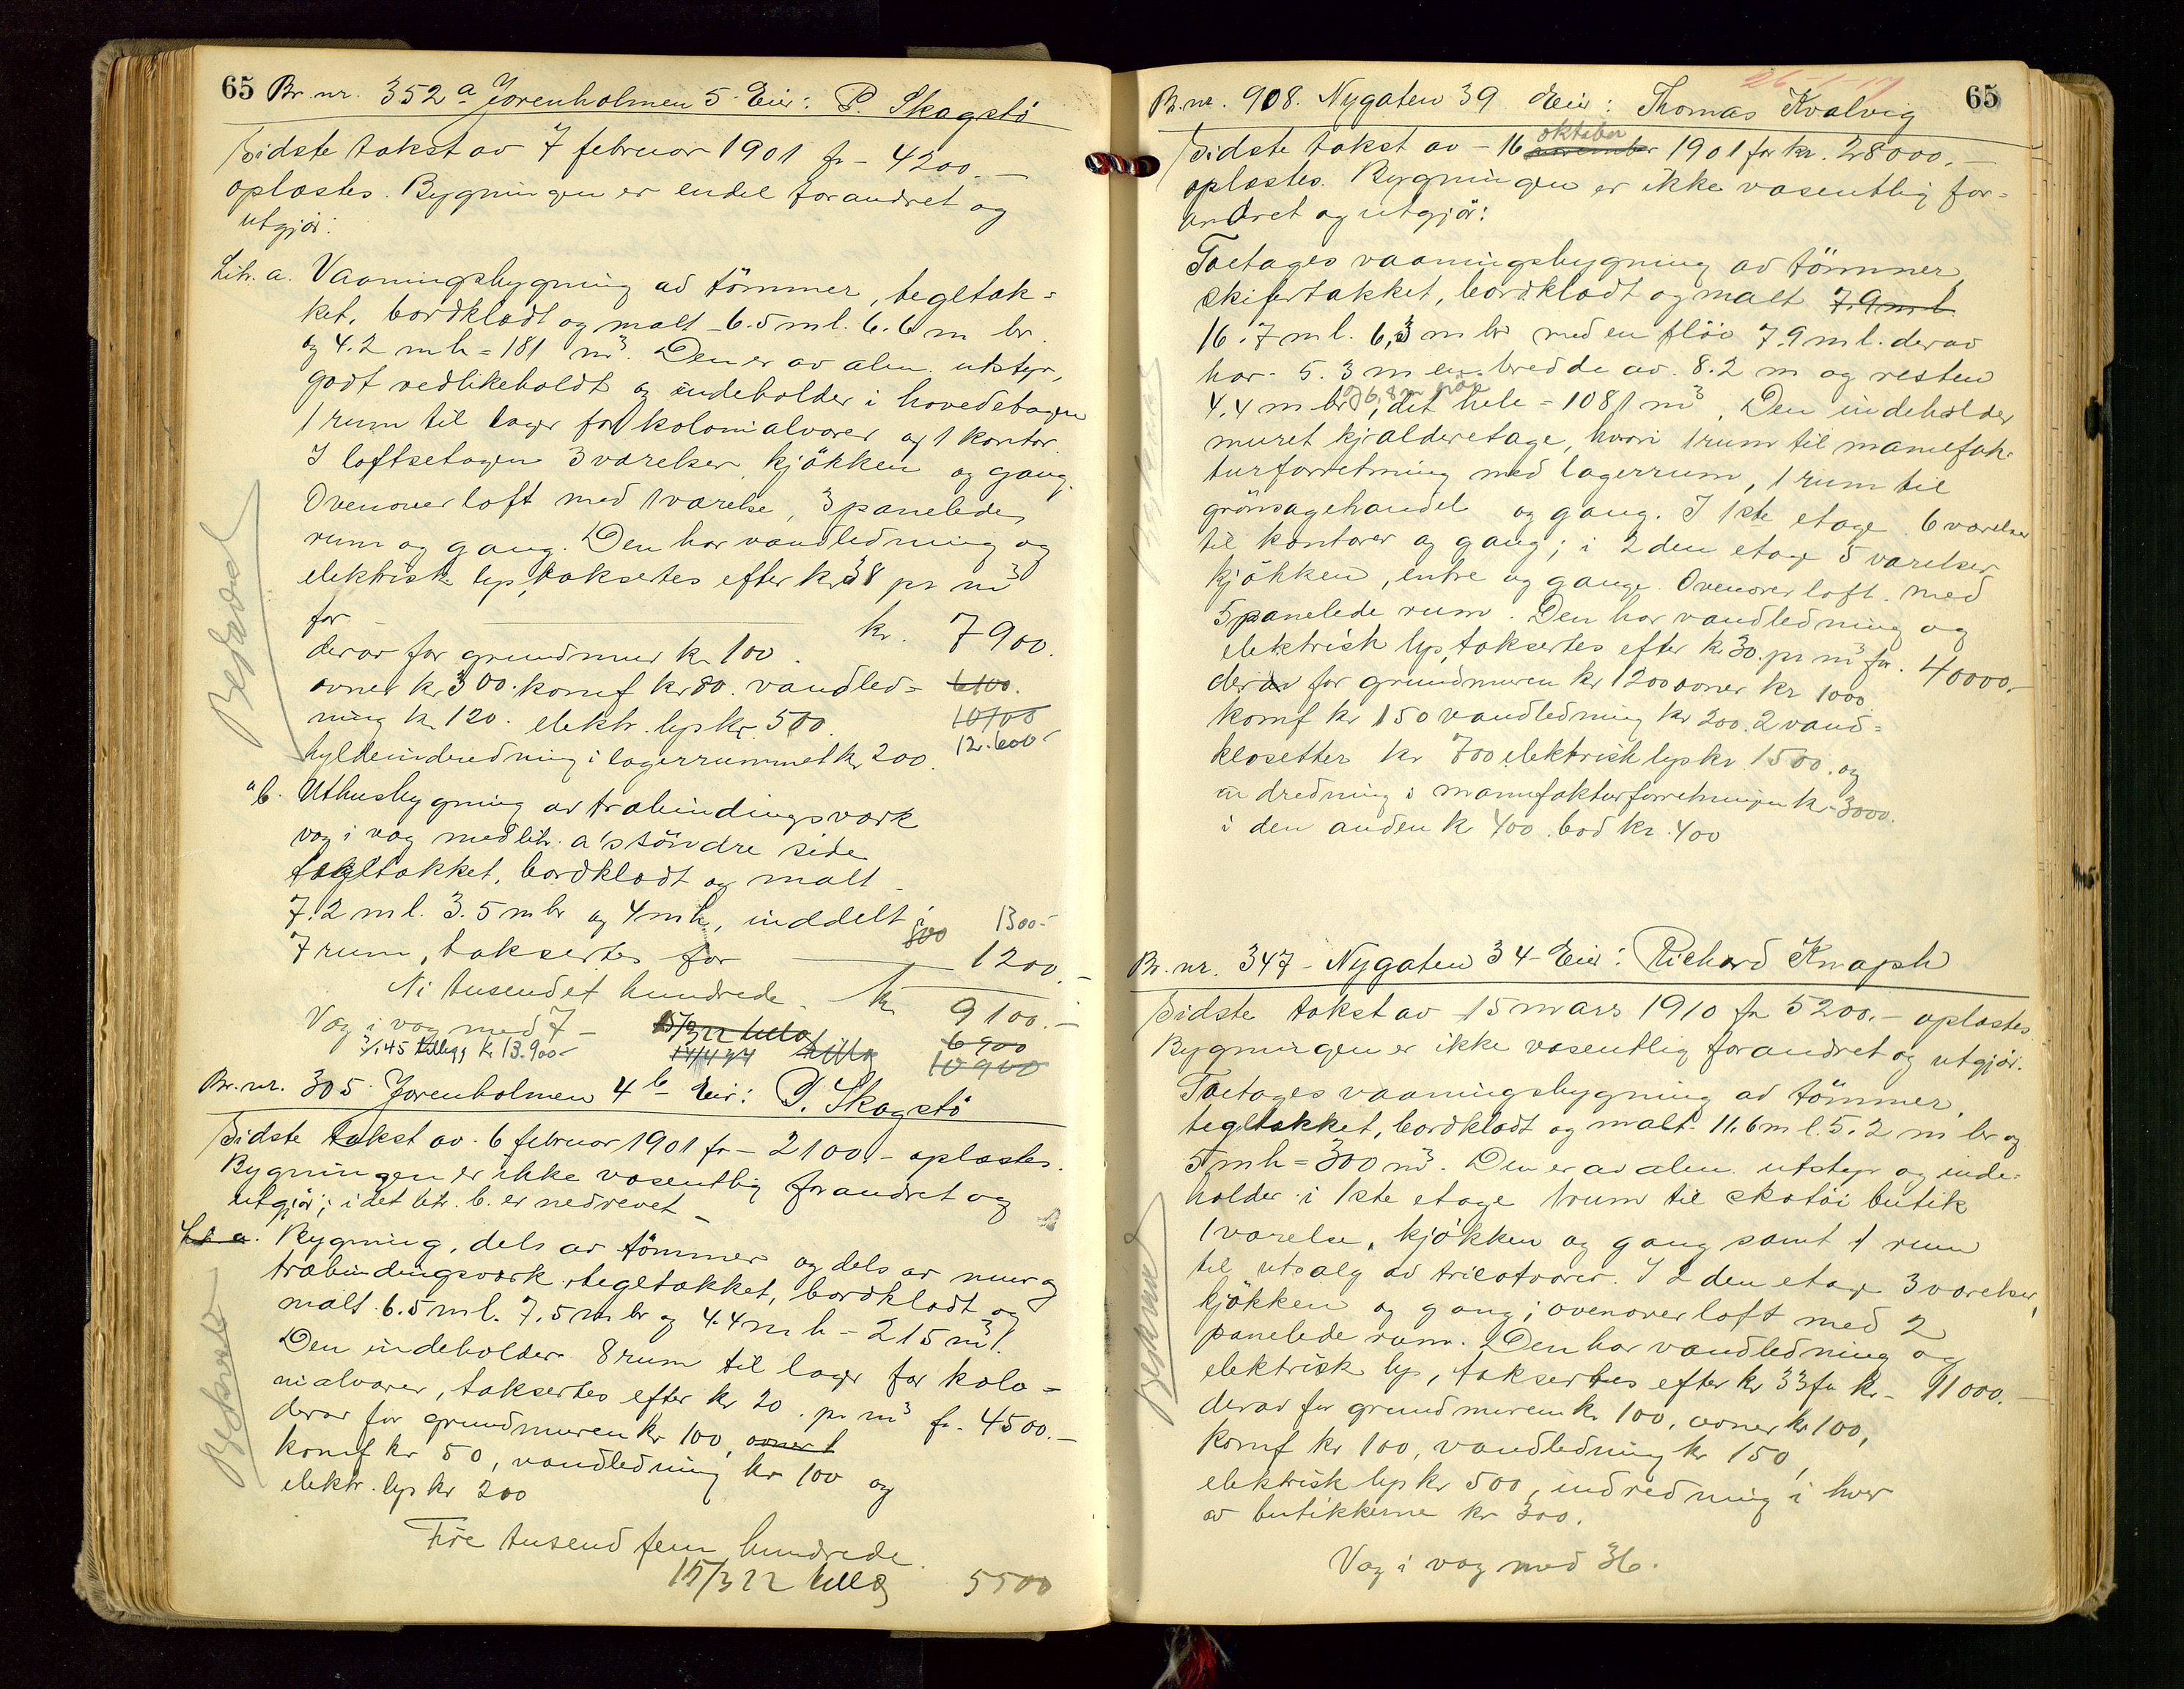 65 Br. nr. 352a Jorenholmen 5. Eier: P. Skagstö
Sidste takst av 7 februar 1901 fr - 4200.-
oplæstes. Bygningen er endel forandret og
utgjör:
Litr. a. Vaaningsbygning av tömmer, tegltæk-
ket, bordklædt og malt 6.5 m l. 6.6 m br.
og 4.2 m h = 181 m³. Den er av alm. utstyr,
godt vedlikeholdt og indeholder i hovedetagen
1 rum til lager for kolonialvarer og 1 kontor.
I loftsetagen 3 værelser, kjökken og gang.
Ovenover loft med 1 værelse, 3 panelede
rum og gang. Den har vandledning og
elektrisk lys, taksertes efter kr 38 pr m³
for kr. 7900.
derav for grundmur kr 100.
ovner kr 300. komf kr 80. vandled= 6100.
ning kr 120. elektr. lys kr. 500. 10700
hyldeindredning i lagerrummet kr 200. 12.600-
" b. Uthusbygning av træbindingsværk
væg i væg med litr. a's söndre side
tegltækket, bordklædt og malt
7.2 m l. 3.5 m br og 4 m h, inddelt i 1300.-
7 rum, taksertes for 800 1200.-
Ni tusen et hundrede. kr 9100.-
Væg i væg med 7 - 15/3 22 tillæg 6900
3/1 45 tillegg kr 13.900- tillæg 10900
Br. nr. 305. Jorenholmen 4b - Eier: P. Skagstö
Sidste takst av 6 februar 1901 fr - 2100.- oplæstes.
Bygningen er ikke væsentlig forandret og
utgjör; i det litr. b. er nedrevet -
Lit a. Bygning, dels av tömmer og dels av mur og
træbindingsværk, tegltækket, bordklædt og
malt. 6.5 m l. 7.5 m br og 4.4 m h - 215 m³.
Den indeholder 8 rum til lager for kolo-
nialvarer, taksertes efter kr 20. pr m³ fr. 4500.-
derav for grundmuren kr 100, ovner
komf kr 50, vandledning kr 100 og
elektr. lys kr 200
Fire tusend fem hundrede.
15/3 22 tillæg 5500
Beskrevet
26-1-17
Br. nr. 908. Nygaten 39 Eier: Thomas Kvalvig 65
Sidste takst av - 16 november oktober 1901 for kr. 28000.-
oplæstes. Bygningen er ikke væsentlig for=
andret og utgjör:
Toetages vaaningsbygning av tömmer,
skifertækket, bordklædt og malt 7.9 m l
16.7 m l. 6,3 m br med en flöi 7.9 m l. derav
har 5.3 m en bredde av 8.2 m og resten
4.4 m br og 6,8 m höi, det hele = 1081 m³. Den indeholder
muret kjælderetage, hvori 1 rum til manufak-
turforretning med lagerrum, 1 rum til
grönsagehandel og gang. I 1ste etage 6 værelser
til kontorer og gang; i 2den etage 5 værelser
kjökken, entre og gange. Ovenover loft med
5 panelede rum. Den har vandledning og
elektrisk lys, taksertes efter kr 30. pr m³ fr. 40000.-
derav for grundmuren kr 1200 ovner kr 1000
komf kr 150 vandledning kr 200. 2 vand=
klosetter kr 700 elektrisk lys kr. 1500. og
indredning i manufakturforretningen kr. 3000.
i den anden kr 400. bod kr. 400
Br. nr. 347 - Nygaten 34 - Eier: Richard Knaph
Sidste takst av 15 mars 1910 fr 5200.- oplæstes.
Bygningen er ikke væsentlig forandret og utgjör.
Toetages vaaningsbygning av tömmer,
tegltækket, bordklædt og malt. 11.6 m l. 5.2 m br og
5 m h = 300 m³. Den er av alm. utstyr og inde-
holder i 1ste etage 1 rum til skotöi butik
1 værelse, kjökken og gang samt 1 rum
til utsalg av tricotvarer. I 2den etage 3 værelser,
kjökken og gang; ovenover loft med 2
panelede rum. Den har vandledning og
elektrisk lys, taksertes efter kr 33 fr kr. 11000.-
derav for grundmuren kr 100, ovner kr 100,
komf kr 100, vandledning kr 150,
elektrisk lys kr 500, indredning i hver
av butikkerne kr 300.
Væg i væg med 36.
Beskrevet